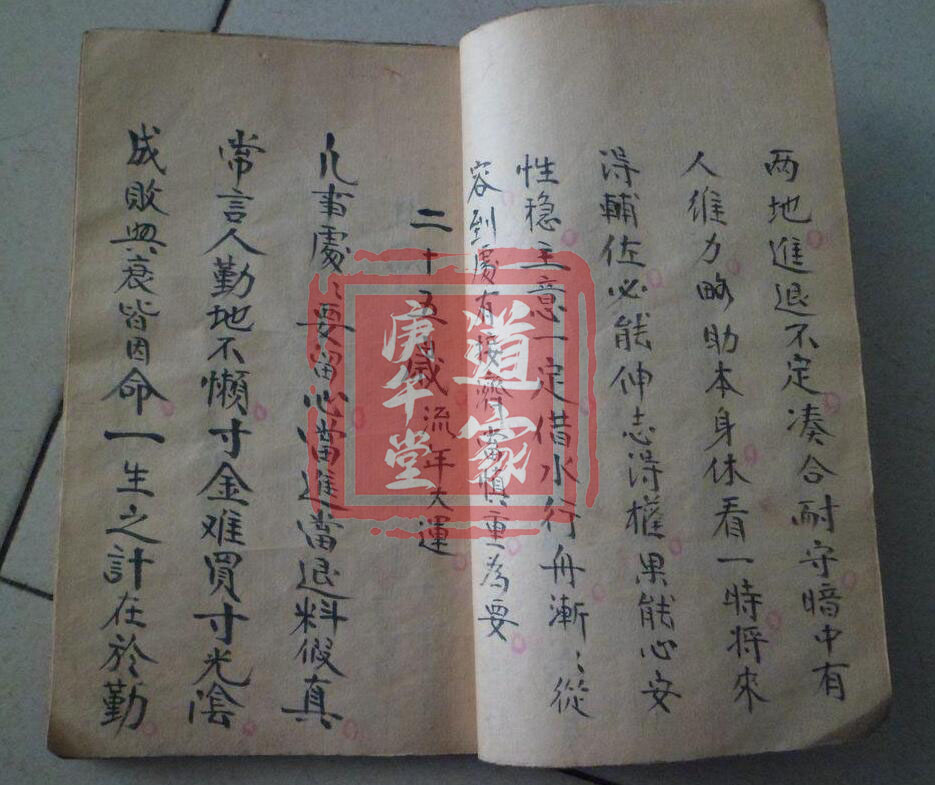 两地進退不定凑合耐守暗中有
人维力略助本身休看一時将來
得輔佐必能伸志得權果能心安
性稳主意一定借水行舟漸〻從
容到處有接濟當慎重為要
二十五歲流年大運
凡事處〻要留心當進當退料假真
常言人勤地不懒寸金难買寸光陰
成敗興衰皆因命一生之計在於勤
道家
庚午堂